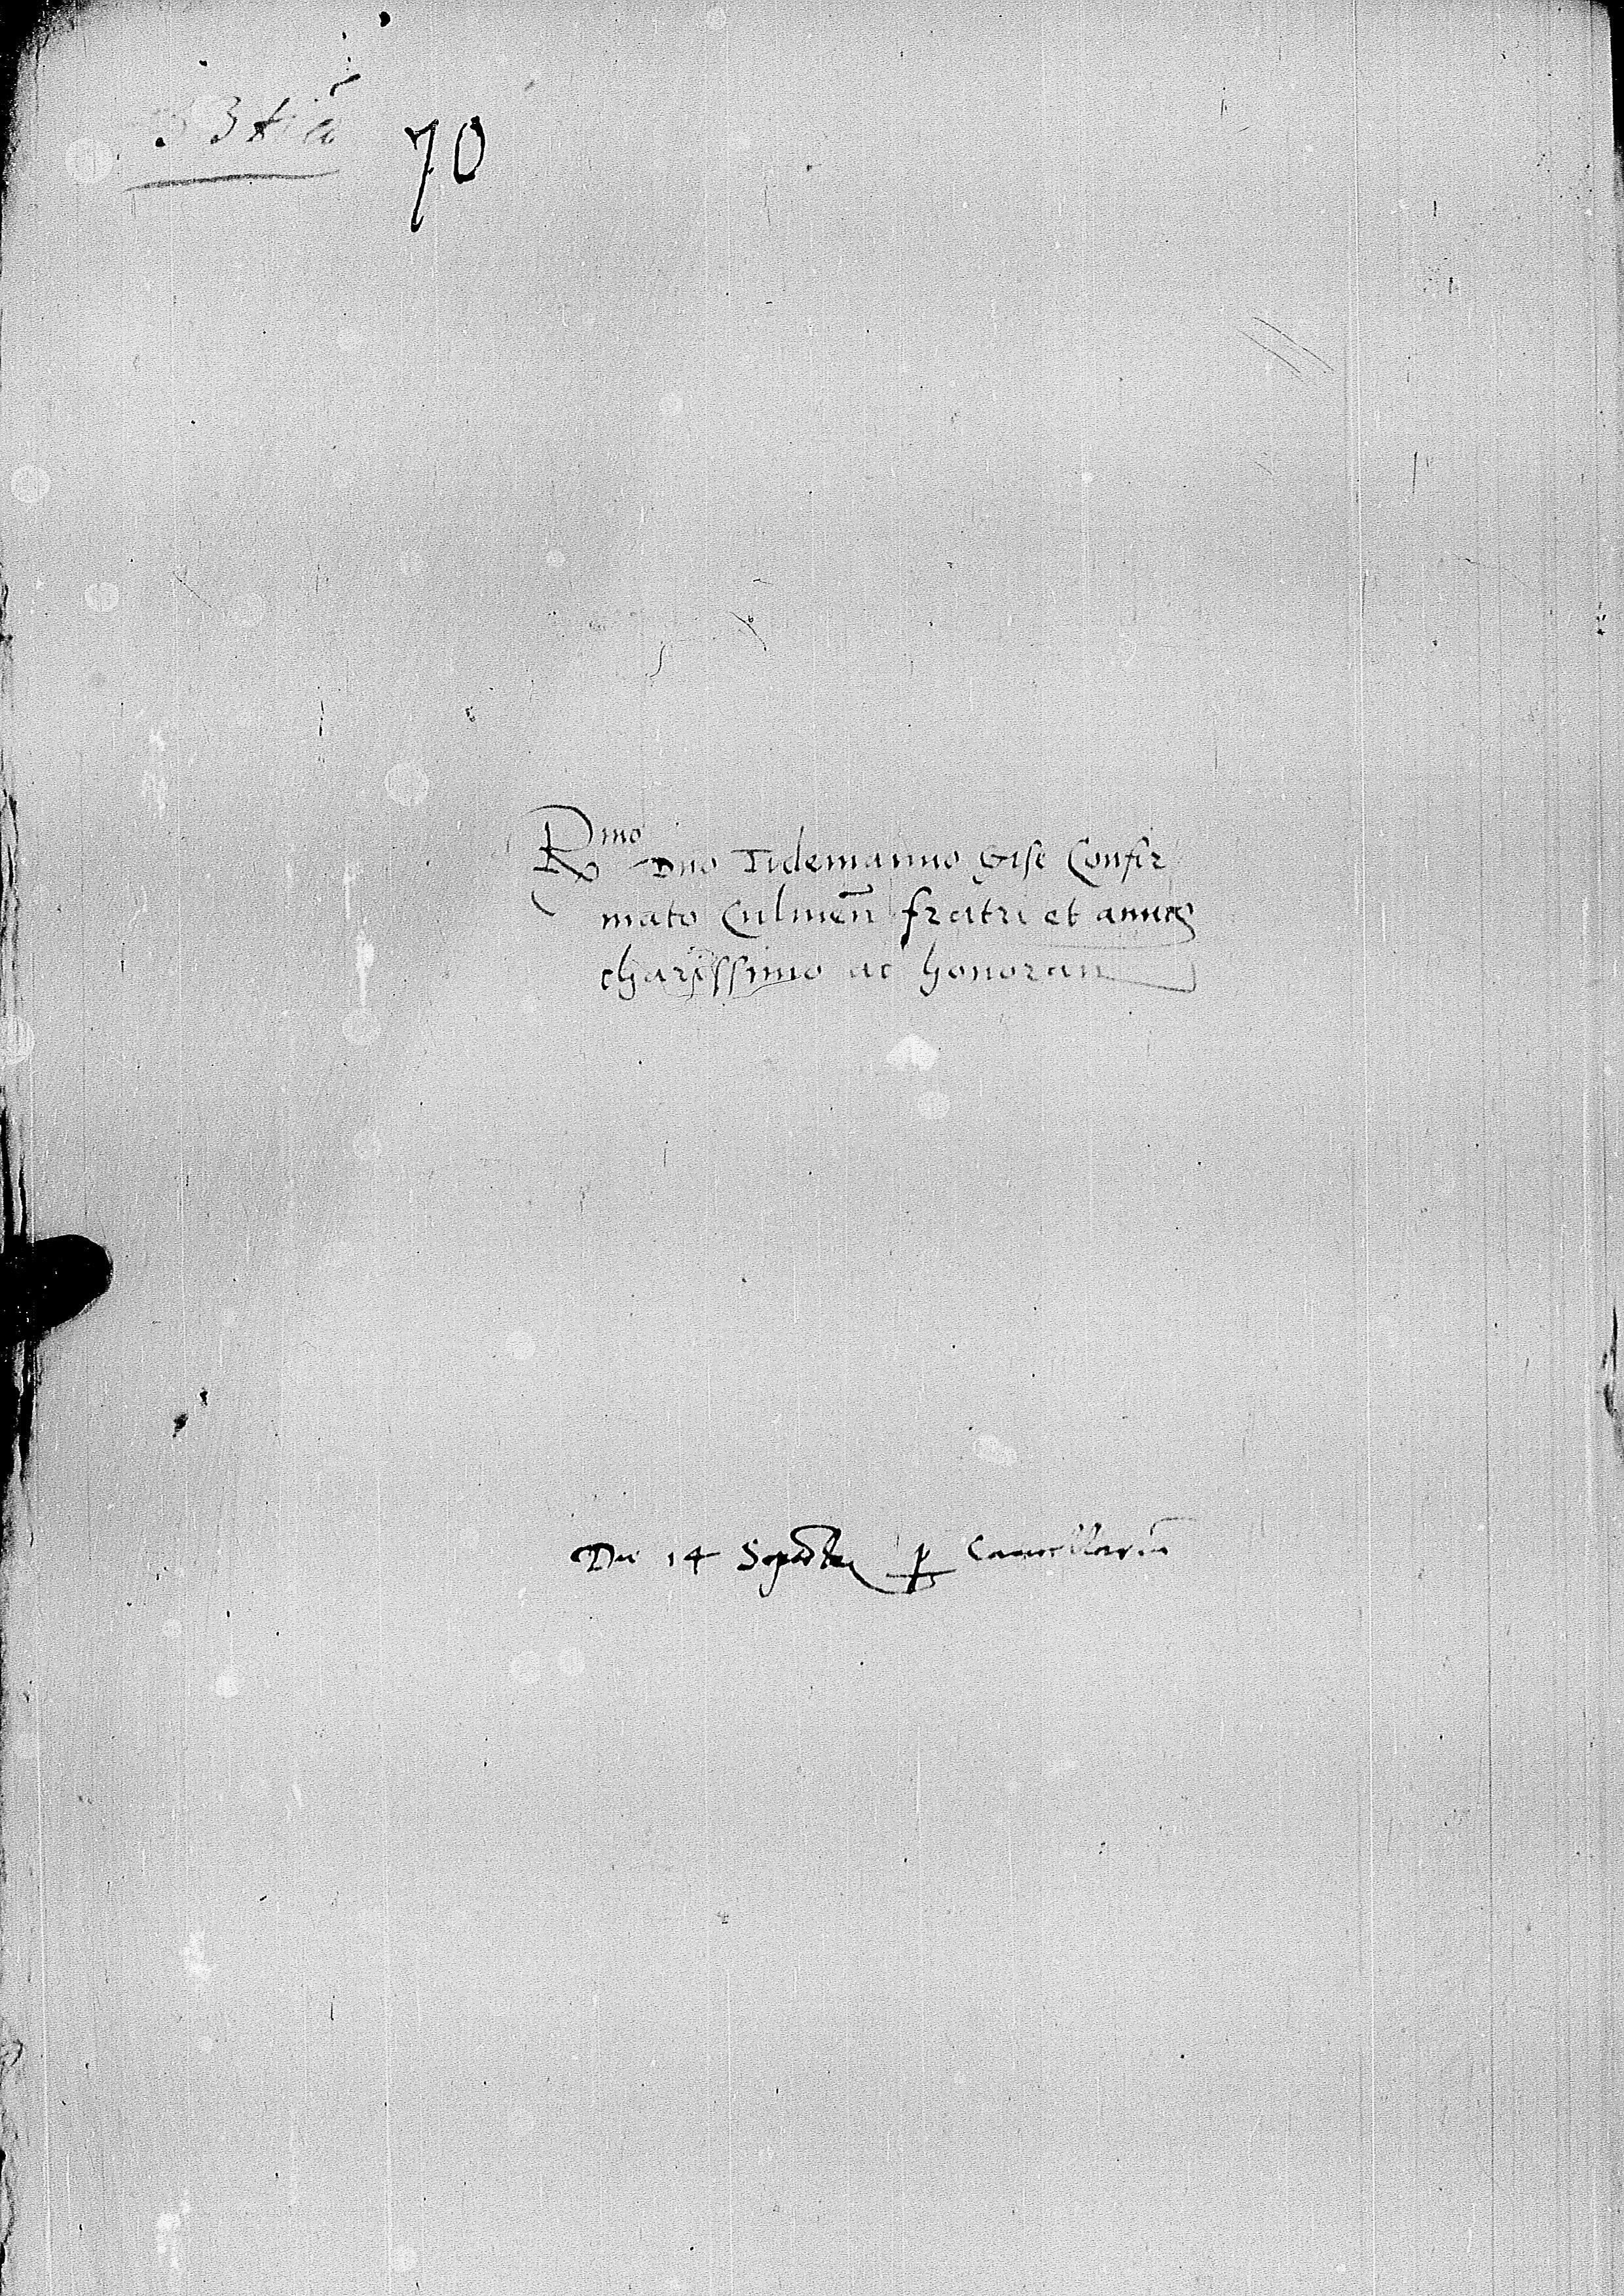 70
R^mo Dno Tidemanno Gise Confir
mato Culmen̄ fratri et amico
charissimo ac honoran
Die 14 Septembr ꝑ Cancellariū